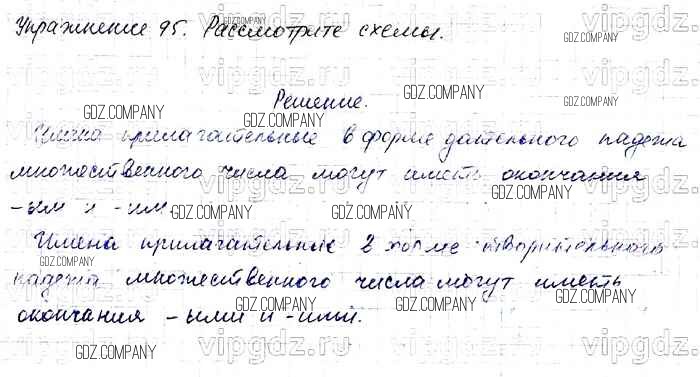 Упражнение 95. Рассмотрите схемы.
Решение.
Имена прилагательные в форме дательного падежа
множественного числа могут иметь окончания
-ым и -им.
Имена прилагательные в форме творительного
падежа множественного числа могут иметь
окончания -ыми и -ими.
GDZ.COMPANY
vipgdz.ru